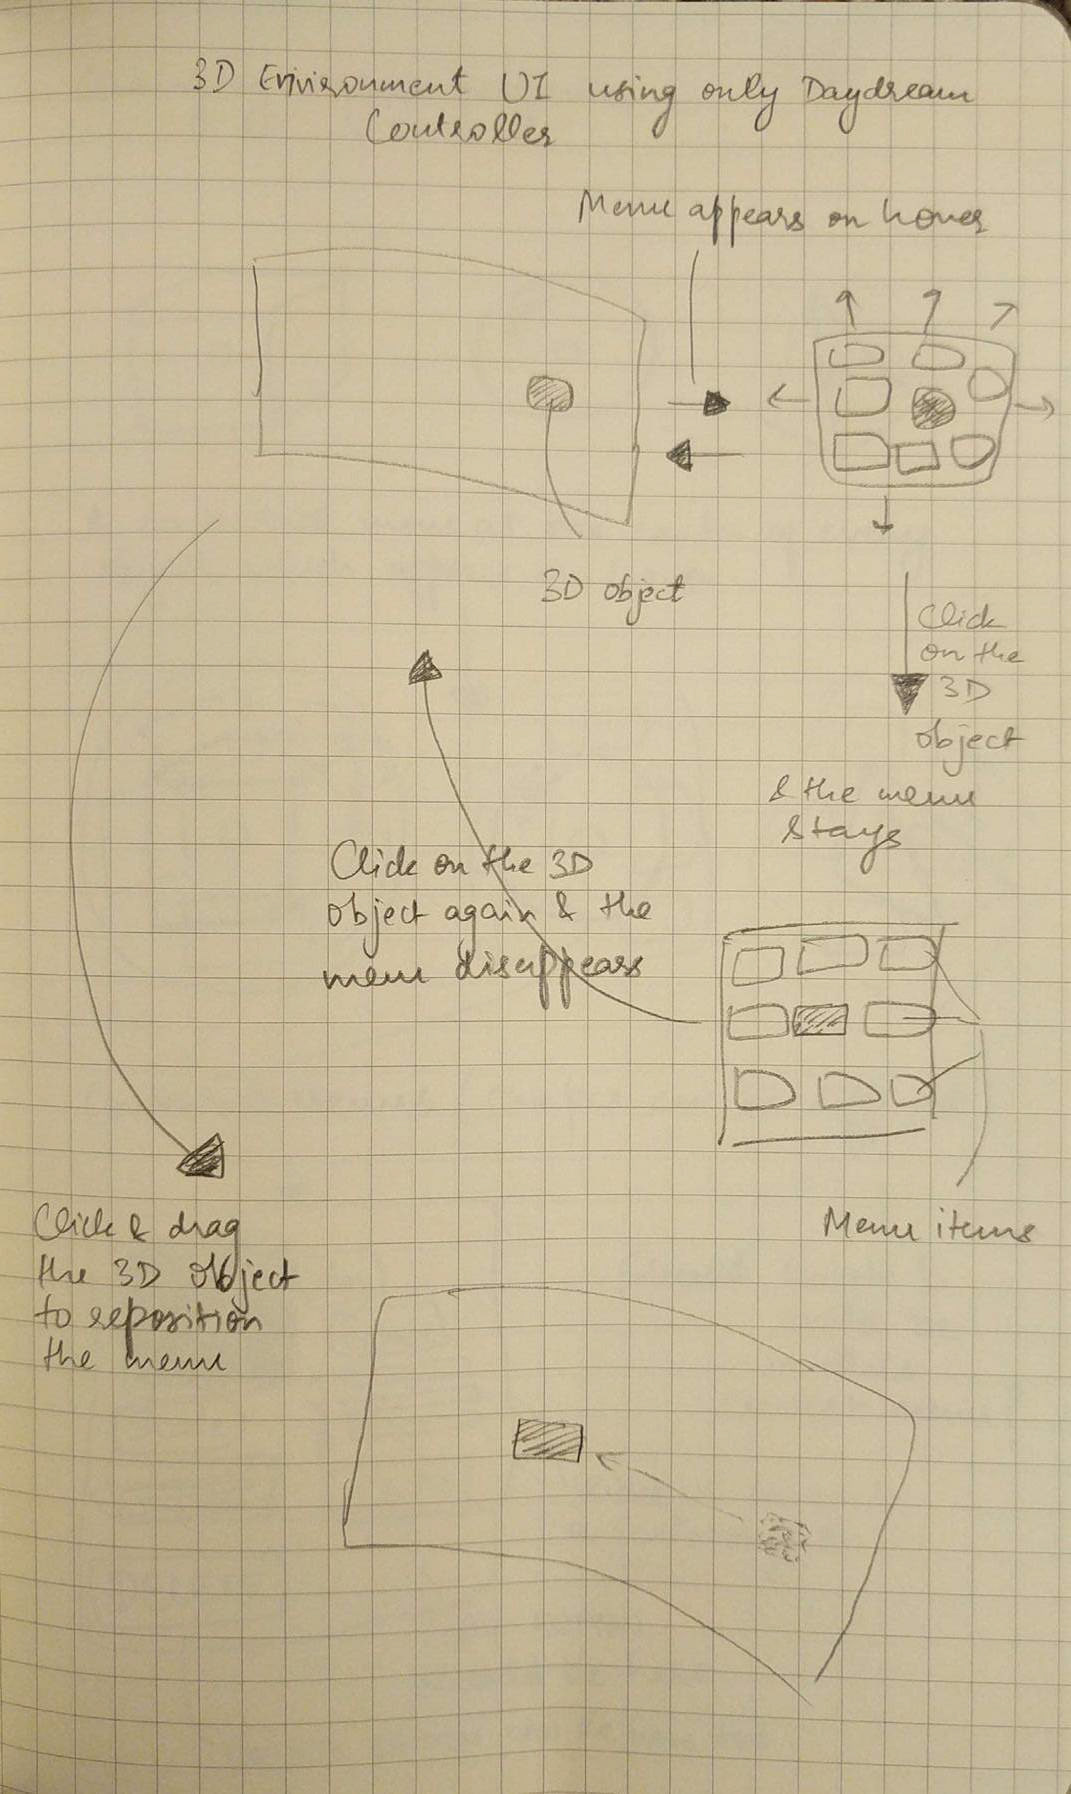 3D Environment UI using only Daydream
Controller
Menu appears on hover
3D object
Click
on the
3D
object
& the menu
stays
Click on the 3D
object again & the
menu disappears
Menu items
Click & drag
the 3D object
to reposition
the menu